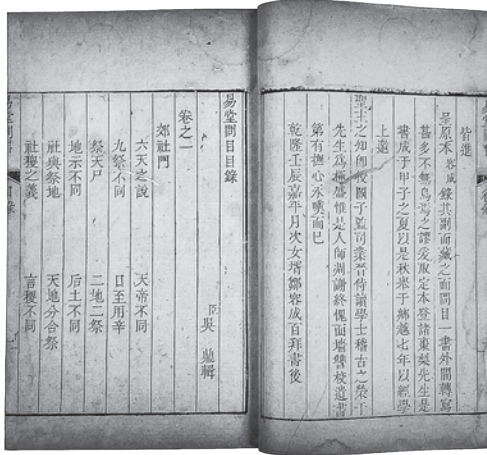 皆進
呈原本容成錄其副而藏之面問目一書外間轉寫
甚多不無烏焉之謬爰取定本登諸東梨先生是
書成于甲子之夏以是秋舉于鄉越七年以經學
上邀
聖主之知仰授國子監司業晉侍讀學士稽古之榮于
先生為極盛惟是人師凋謝終愧面墻讐校遺書
第有撫心永嘆而已
乾隆壬辰嘉平月次女壻鄒容成百拜書後
易堂問目目錄
臣吳鼎輯
卷之一
郊社門
六天之說 天帝不同
九祭不同 日至用辛
祭天尸 二地二祭
地示不同 后土不同
社與祭地 天地分合祭
社稷之義 言稷不同
易堂問目 目錄